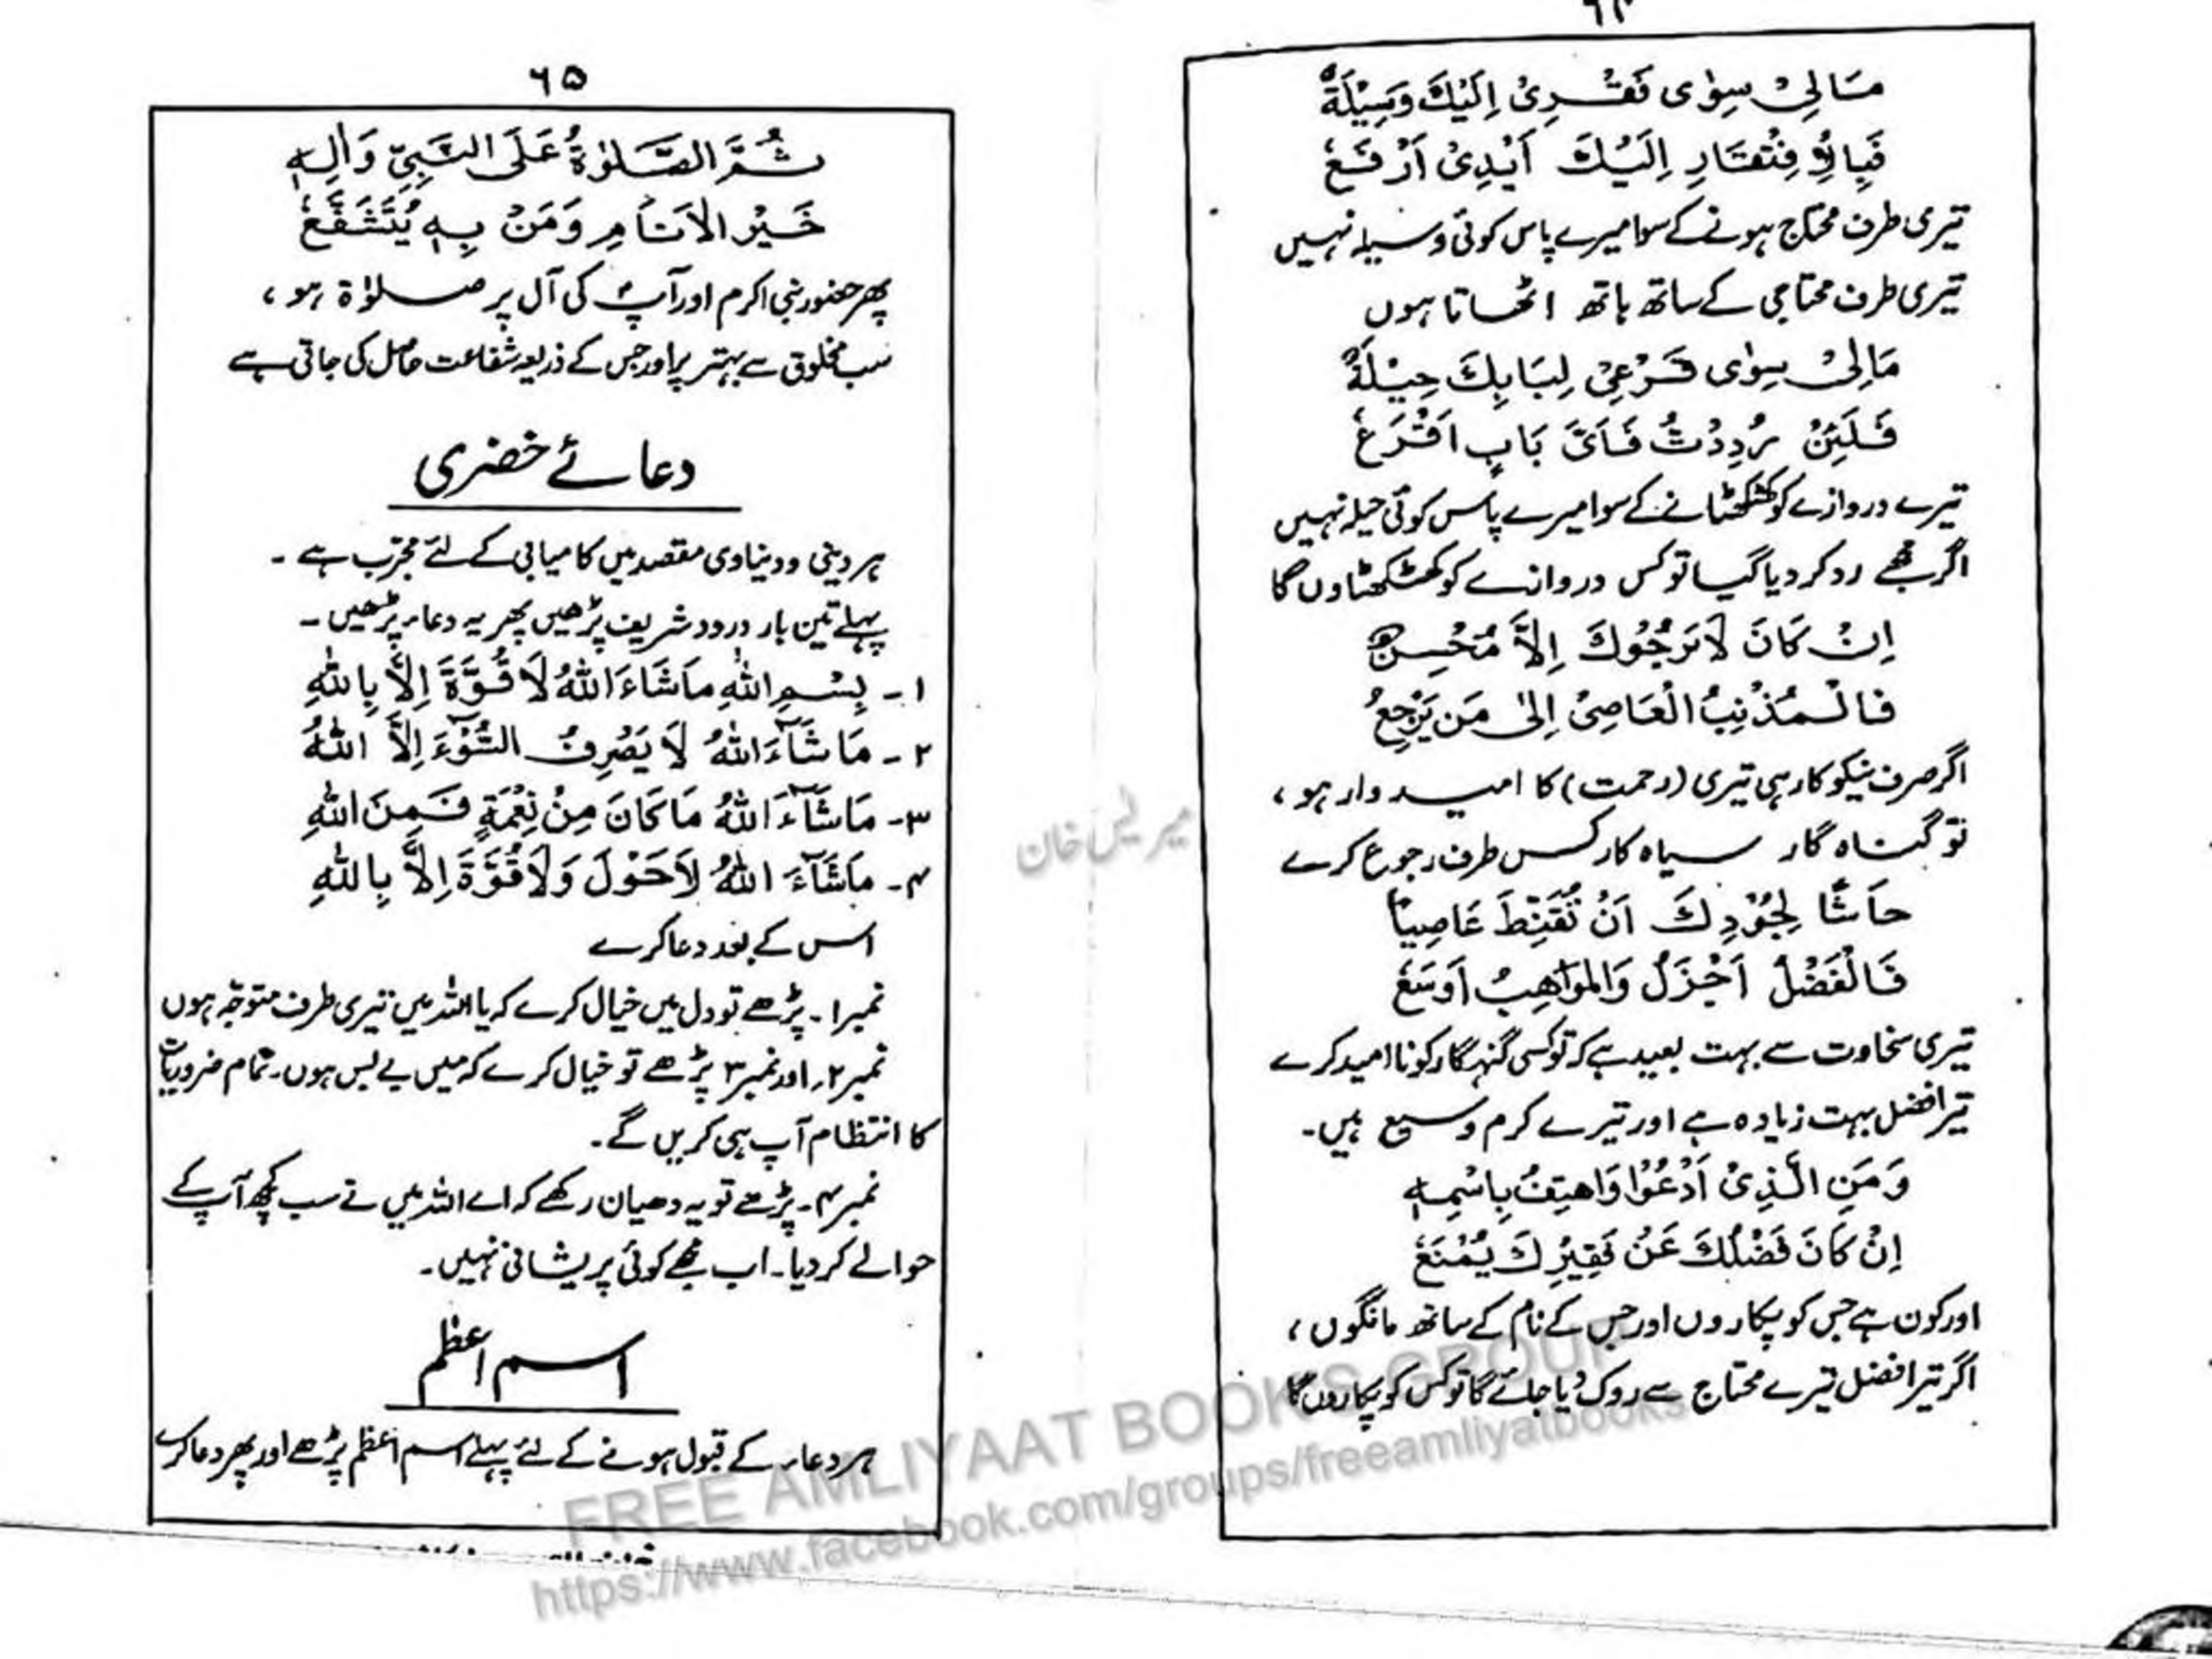 ۶۴
مَالِیْ سِوٰی فَقْرِیْ اِلَیْكَ وَسِیْلَةٌ
فَبِالْاِفْتِقَارِ اِلَیْكَ اَیْدِیْ اَرْفَعُ
تیری طرف محتاج ہونے کے سوا میرے پاس کوئی وسیلہ نہیں
تیری طرف محتاجی کے ساتھ ہاتھ اٹھاتا ہوں
مَالِیْ سِوٰی قَرْعِیْ لِبَابِكَ حِیْلَةٌ
فَلَئِنْ رُدِدْتُ فَاَیَّ بَابٍ اَقْرَعُ
تیرے دروازے کو کھٹکھٹانے کے سوا میرے پاس کوئی حیلہ نہیں
اگر مجھے رد کر دیا گیا تو کس دروازے کو کھٹکھٹاوں گا
اِنْ كَانَ لَا یَرْجُوْكَ اِلَّا مُحْسِنٌ
فَالْمُذْنِبُ الْعَاصِیْ اِلٰی مَن یَرْجِعُ
اگر صرف نیکو کار ہی تیری (رحمت) کا امیدوار ہو ،
تو گناہ گار سیاہ کار کس طرف رجوع کرے
حَاشَا لِجُوْدِكَ اَنْ تُقَنِّطَ عَاصِیًا
فَالْفَضْلُ اَجْزَلُ وَالْمَوَاهِبُ اَوْسَعُ
تیری سخاوت سے بہت بعید ہے کہ تو کسی گنہگار کو نا امید کرے
تیرا فضل بہت زیادہ ہے اور تیرے کرم وسیع ہیں۔
وَمَنِ الَّذِیْ اَدْعُوْا وَاهتِفُ بِاسْمِهٖ
اِنْ كَانَ فَضْلُكَ عَنْ فَقِیْرِكَ یُمْنَعُ
اور کون ہے جس کو پکاروں اور جس کے نام کے ساتھ مانگوں ،
اگر تیرا فضل تیرے محتاج سے روک دیا جائے گا تو کس کو پکاروں گا
۶۵
ثُمَّ الصَّلٰوةُ عَلَی النَّبِیِّ وَاٰلِهٖ
خَیْرُ الْاَنَامِ وَمَنْ بِهٖ یُتَشَفَّعُ
پھر حضور نبی اکرم اور آپؐ کی آل پر صلوٰۃ ہو ،
سب مخلوق سے بہتر پر اور جس کے ذریعہ شفاعت حاصل کی جاتی ہے
دعائے خضری
ہر دینی و دنیاوی مقصد میں کامیابی کے لئے مجرّب ہے ۔
پہلے تین بار درود شریف پڑھیں پھر یہ دعاء پڑھیں ۔
۱۔ بِسْمِ اللّٰهِ مَاشَاءَ اللّٰهُ لَا قُوَّةَ اِلَّا بِاللّٰهِ
۲۔ مَاشَآءَ اللّٰهُ لَا یَصْرِفُ السُّوْٓءَ اِلَّا اللّٰهُ
۳۔ مَاشَآءَ اللّٰهُ مَا كَانَ مِنْ نِعْمَةٍ فَمِنَ اللّٰهِ
۴۔ مَاشَآءَ اللّٰهُ لَا حَوْلَ وَلَا قُوَّةَ اِلَّا بِاللّٰهِ
اس کے بعد دعا کرے
نمبر ۱۔ پڑھے تو دل میں خیال کرے کہ یا اللہ میں تیری طرف متوجّہ ہوں
نمبر ۲۔ اور نمبر ۳ پڑھے تو خیال کرے کہ میں بے بس ہوں۔ تمام ضروریات
کا انتظام آپ ہی کریں گے۔
نمبر ۴۔ پڑھے تو یہ دھیان رکھے کہ اے اللہ میں نے سب کچھ آپ کے
حوالے کر دیا۔ اب مجھے کوئی پریشانی نہیں۔
اسم اعظم
ہر دعاء کے قبول ہونے کے لئے پہلے اسم اعظم پڑھے اور پھر دعا کرے
FREE AMLIYAAT BOOKS GROUP
https://www.facebook.com/groups/freeamliyatbooks